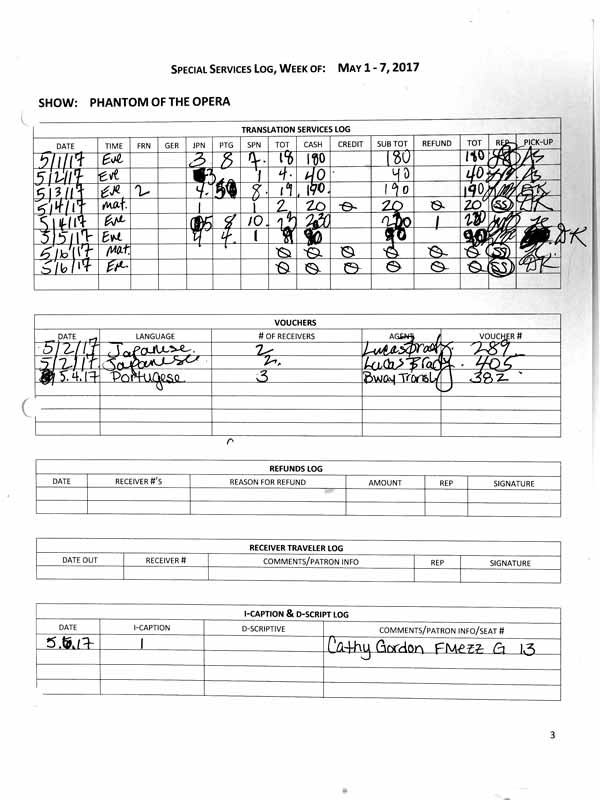 SPECIAL SERVICES LOG, WEEK OF: MAY 1 - 7, 2017
SHOW: PHANTOM OF THE OPERA
TRANSLATION SERVICES LOG
DATE TIME FRN GER JPN PTG SPN TOT CASH CREDIT SUB TOT REFUND TOT REP PICK-UP
5/1/17 Eve 3 8 7. 18 180 180 180 AS
5/2/17 Eve 3 1 4. 40 40 40 AS
5/3/17 Eve 2 4. 5 8. 19. 190. 190 190
5/4/17 mat. 1 1 2 20 0 20 0 20 SS
5/4/17 Eve 5 8 10. 23 230 230 1
5/5/17 Eve 4 4. 1 90 90 90 DK
5/6/17 Mat. 0 0 0 0 0 0 SS
5/6/17 Eve. 0 0 0 0 0 0 SS
VOUCHERS
DATE LANGUAGE # OF RECEIVERS AGENT VOUCHER #
5/2/17 Japanese 2 Lucas Brady. 289.
5/2/17 Japanese 2. Lucas Brady. 405
5.4.17 Portugese 3 Bway Transl 382
REFUNDS LOG
DATE RECEIVER #'S REASON FOR REFUND AMOUNT REP SIGNATURE
RECEIVER TRAVELER LOG
DATE OUT RECEIVER # COMMENTS/PATRON INFO REP SIGNATURE
I-CAPTION & D-SCRIPT LOG
DATE I-CAPTION D-SCRIPTIVE COMMENTS/PATRON INFO/SEAT #
5.5.17 1 Cathy Gordon FMezz G 13
3